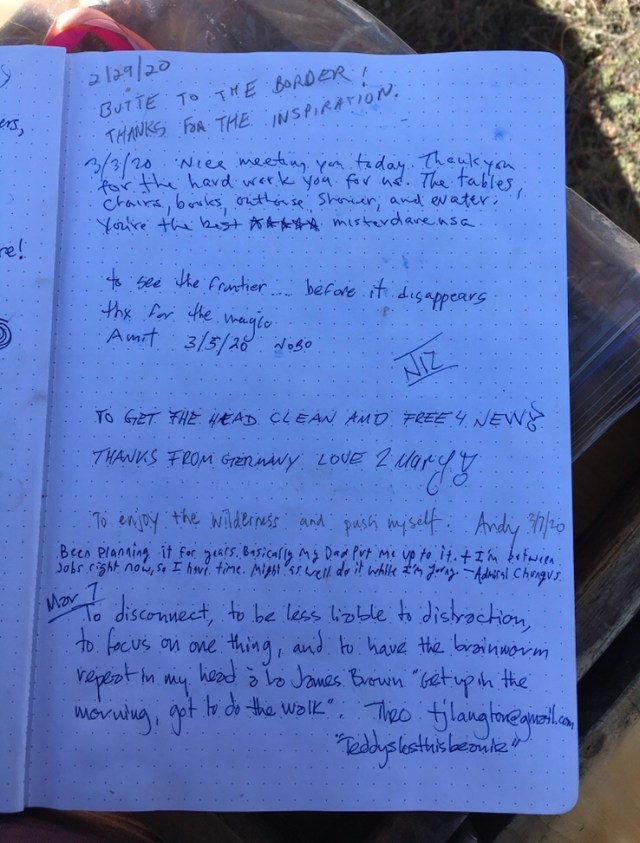 2/29/20
BUTTE TO THE BORDER!
THANKS FOR THE INSPIRATION.
3/3/20 Nice meeting you today. Thank you
for the hard work you for us. The tables,
Chairs, books, outhouse, shower, and water.
You're the best ★★★★★ misterdaveusa
to see the frontier.... before it disappears
thx for the magic
Amit 3/5/20 NOBO
NIZ
TO GET THE HEAD CLEAN AND FREE 4 NEW!
THANKS FROM GERMANY LOVE 2 Mary!
To enjoy the wilderness and push myself. Andy 3/7/20
Been planning it for years. Basically my Dad put me up to it. + I'm between
Jobs right now, so I have time. Might as well do it while I'm young. - Admiral Chongus
Mar 7
To disconnect, to be less liable to distraction,
to focus on one thing, and to have the brainworm
repeat in my head à la James Brown "Get up in the
morning, got to do the walk". Theo tjlangton@gmail.com
ers,
re!